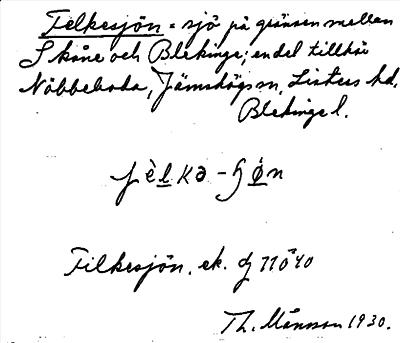 Felkesjön = sjö på gränsen mellan
Skåne och Blekinge; en del tillhör
Näbbeboda, Jämshögs sn, Listers hd,
Blekinge l.
fèlkə-ʃǿn
Filkesjön, ek. 77ö40
Th. Månsson 1930.